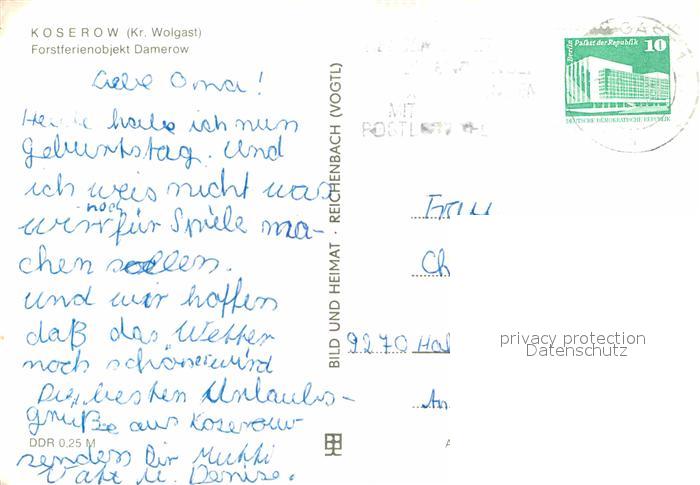 KOSEROW (Kr. Wolgast)
Forstferienobjekt Damerow
Liebe Oma!
Heute habe ich nun
Geburtstag. Und
ich weis nicht was
wir noch für Spiele ma-
chen sollen.
Und wir hoffen
daß das Wetter
noch schöner wird
Die besten Urlaubs-
grüße aus Koserow
senden Dir Mutti
Vati u. Denise.
DDR 0,25 M
BILD UND HEIMAT · REICHENBACH (VOGTL)
MIT
Berlin Palast der Republik 10
DEUTSCHE DEMOKRATISCHE REPUBLIK
Frau
Ch
9270 Hoh
An
privacy protection
Datenschutz